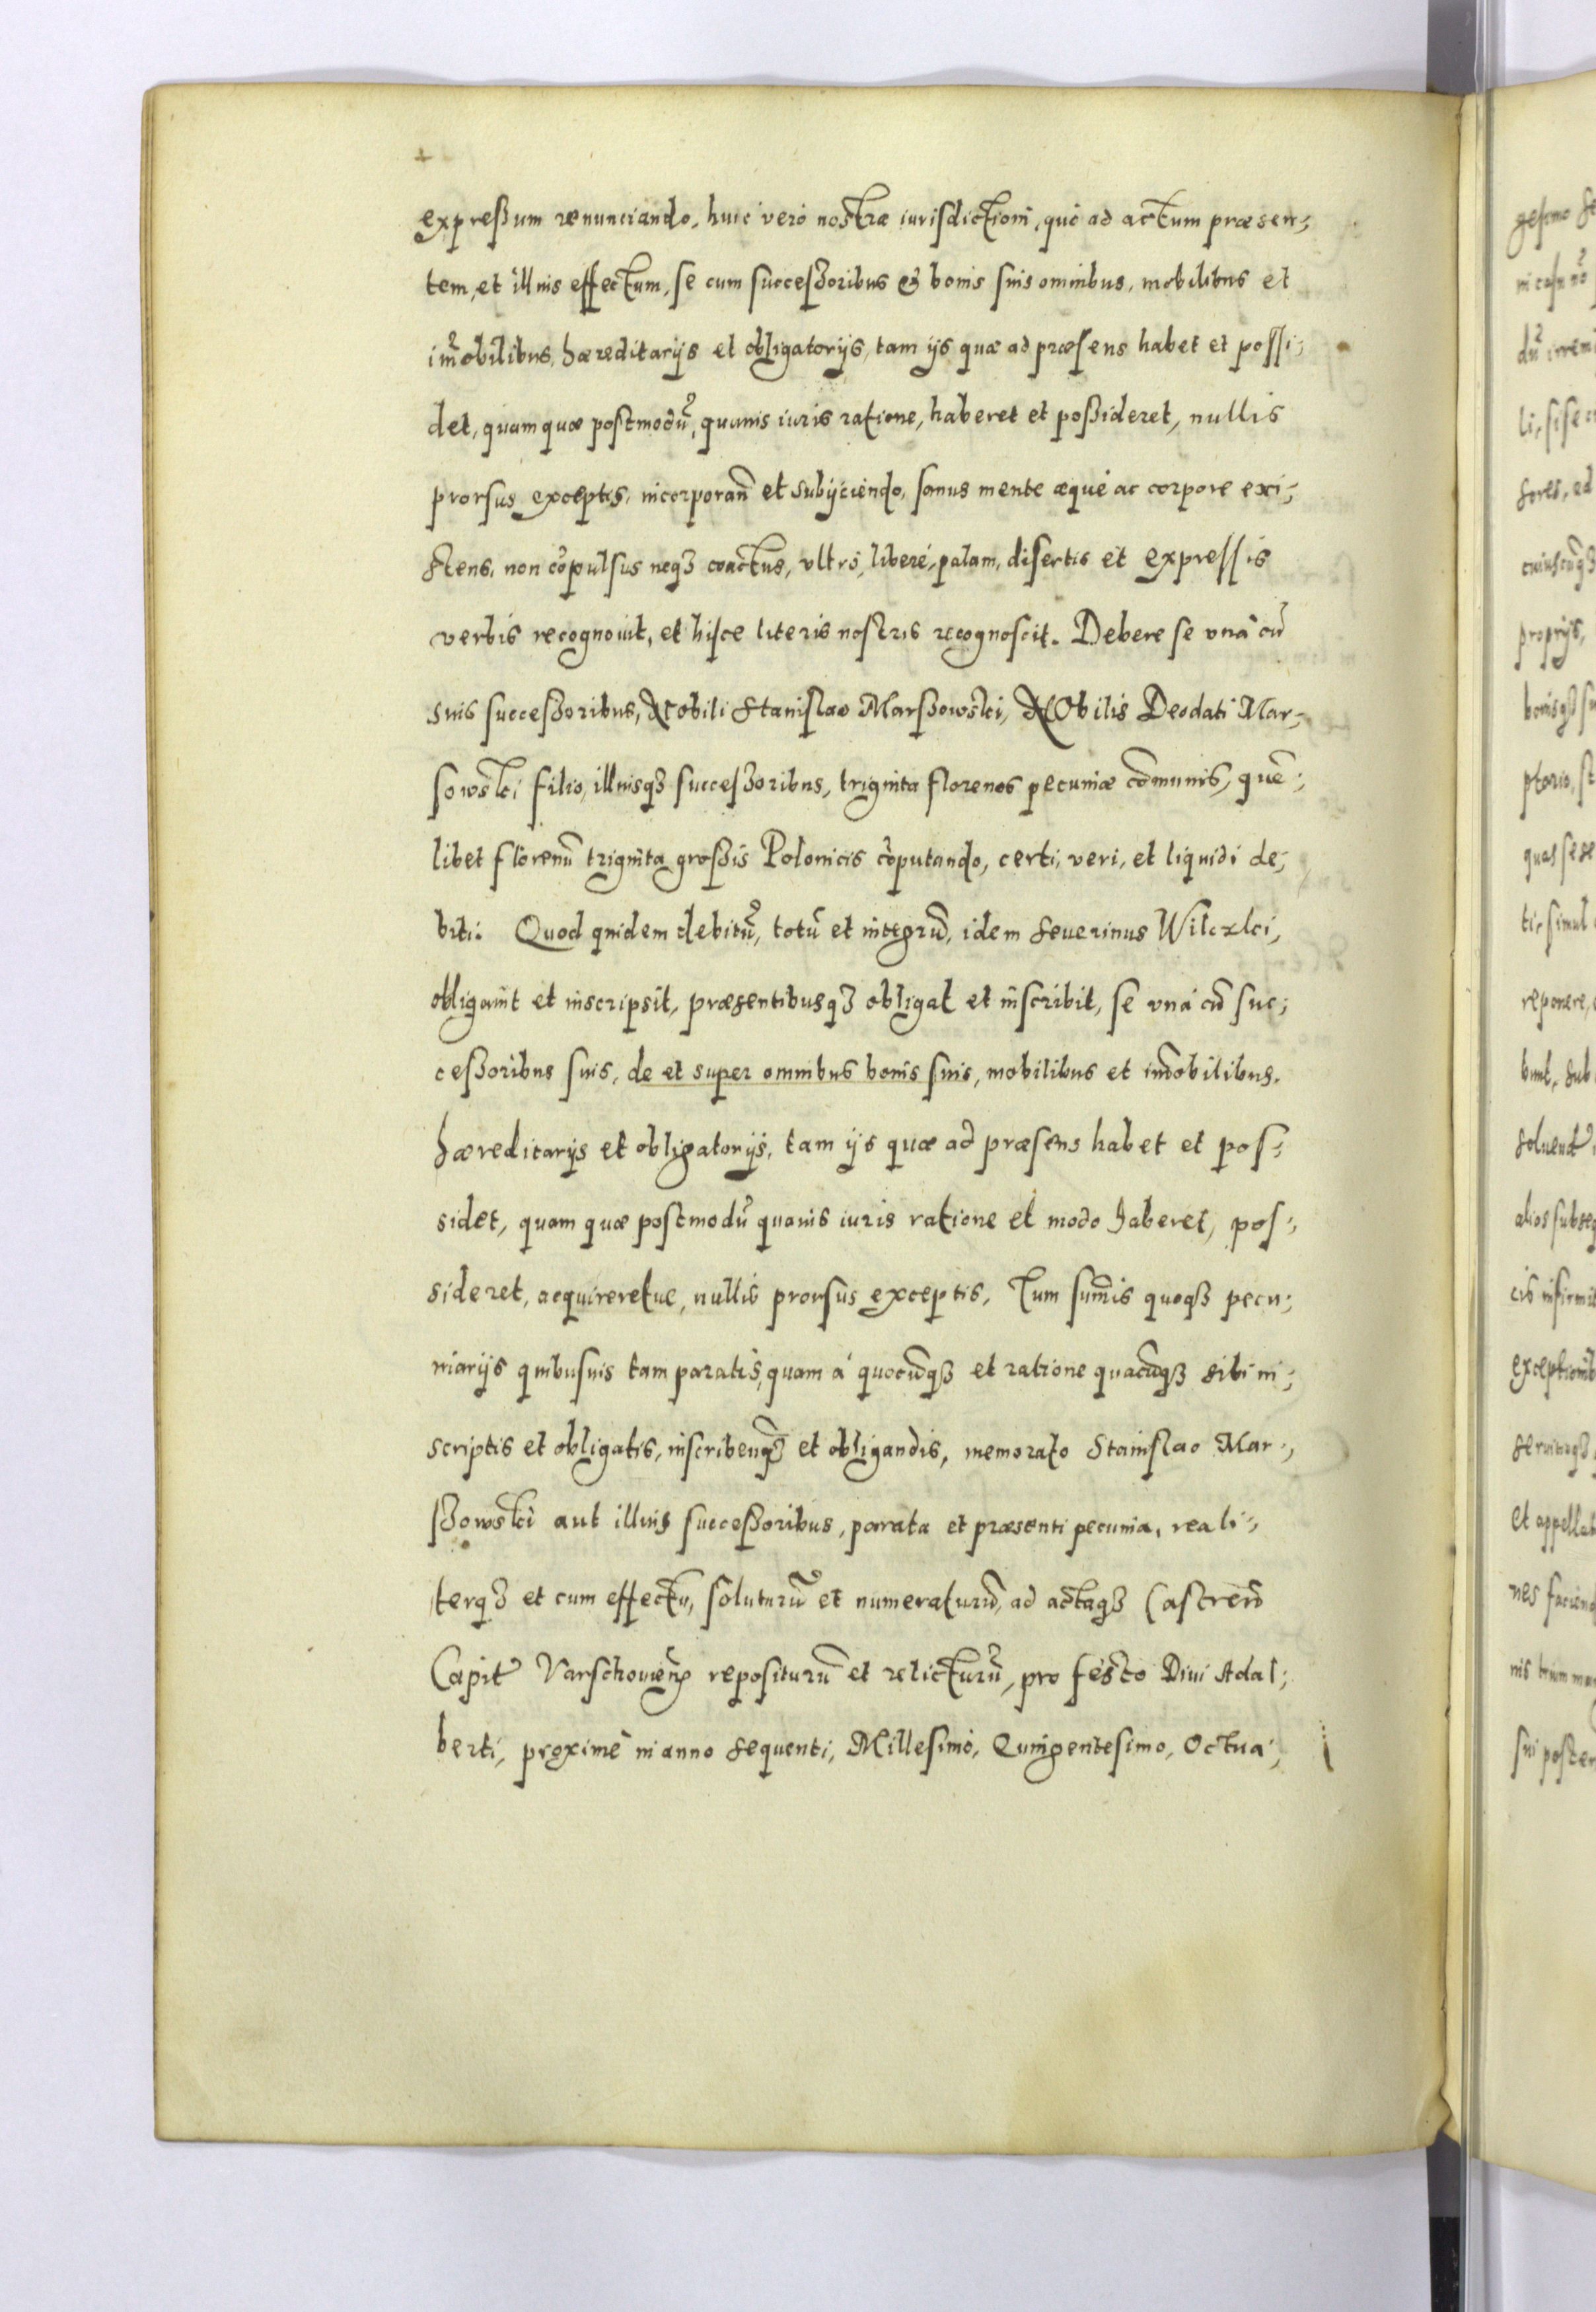 expreßum renunciando, huic vero nostræ iurisdictioni, quò ad actum præsen-
tem, et illius effectum, se cum succeßoribus & bonis suis omnibus, mobilibus et
im̃obilibus, hæreditarijs et obligatorijs, tam ijs quæ ad præsens habet et possi-
det, quam quæ postmodũ, quauis iuris ratione, haberet et poßideret, nullis
prorsus exceptis, incorporan̄ et subijciendo, sanus mente æquè ac corpore exi-
stens, non cõpulsus neqꝫ coactus, vltrò, liberè, palam, disertis et expressis
verbis recognouit, et hisce literis nostris recognoscit. Debere se vnà cũ
suis succeßoribus, Nobili Stanislao Marßowski, Nobilis Deodati Mar-
sowski filio, illiusqꝫ succeßoribus, triginta florenos pecuniæ com̃unis, quẽ-
libet florenũ triginta großis Polonicis cõputando, certi, veri, et liquidi de-
biti. Quod quidem debitũ, totũ et integrũ, idem Seuerinus Wilcxki,
obligauit et inscripsit, præsentibusqꝫ obligat et inscribit, se vnà cũ suc-
ceßoribus suis, de et super omnibus bonis suis, mobilibus et im̃obilibus,
hæreditarijs et obligatorijs, tam ijs quæ ad præsens habet et pos-
sidet, quam quæ postmodũ quauis iuris ratione et modo haberet, pos-
sideret, acquireretue, nullis prorsus exceptis, Tum sum̃is quoqꝫ pecu-
niarijs quibusuis tam paratis, quam à quocũqꝫ et ratione quacũqꝫ sibi in-
scriptis et obligatis, inscribenqꝫ et obligandis, memorato Stanislao Mar-
ßowski aut illius succeßoribus, parata et præsenti pecunia, reali-
terqꝫ et cum effectu, soluturũ et numeraturũ, ad actaqꝫ Castren̄
Capit Varschouien̄ repositurũ et relicturũ, pro festo Diui Adal-
berti, proximè in anno sequenti, Millesimo, Quingentesimo, Octua-